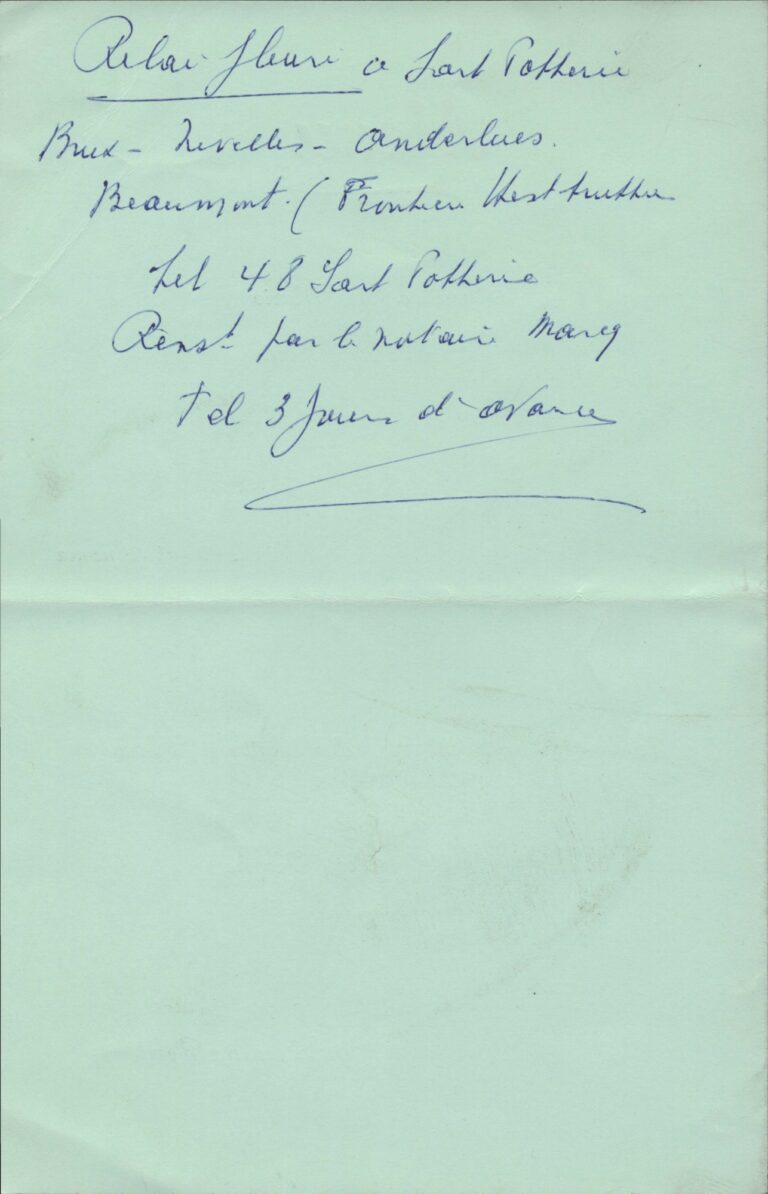 Relai fleuri a Sart Potterie
Brux - Nivelles - Anderlues.
Beaumont. ( Frontiere Hestrud
tel 48 Sart Potterie
Renst par le notaire Marcq
Tel 3 jours d'avance